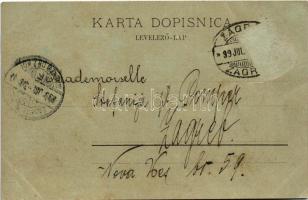 KARTA DOPISNICA
LEVELEZŐ-LAP
ZAGR
99 JUL
ZAGR
Mademoiselle
Stefanija
Zagreb
Nova Ves br. 59.